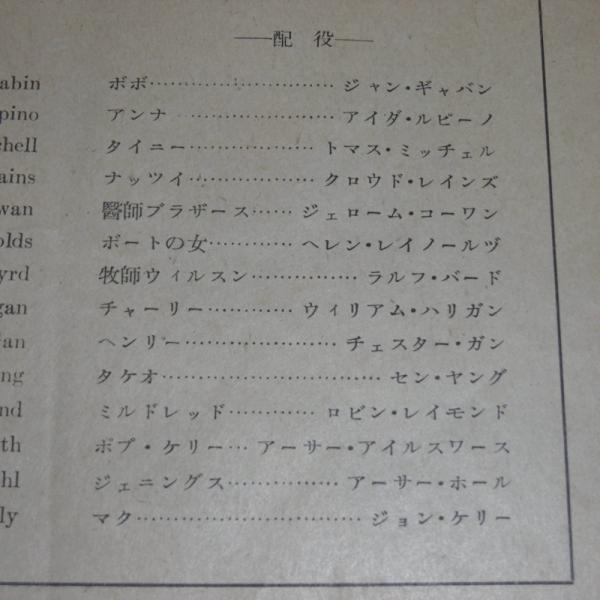 ──配 役──
abin ボボ………………………… ジャン・ギャバン
pino アンナ ……………………… アイダ・ルピーノ
chell タイニー……………… トマス・ミッチェル
ains ナッツイ………………… クロウド・レインズ
wan 醫師ブラザース…… ジェローム・コーワン
olds ボートの女………… ヘレン・レイノールヅ
yrd 牧師ウィルスン…………… ラルフ・バード
gan チャーリー………… ウィリアム・ハリガン
an ヘンリー…………………… チェスター・ガン
ng タケオ……………………………… セン・ヤング
nd ミルドレッド………… ロビン・レイモンド
th ボブ・ケリー… アーサー・アイルスワース
hl ジェニングス……………… アーサー・ホール
ly マク……………………………… ジョン・ケリー